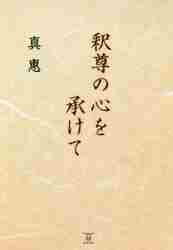 釈尊の心を
承けて
真惠